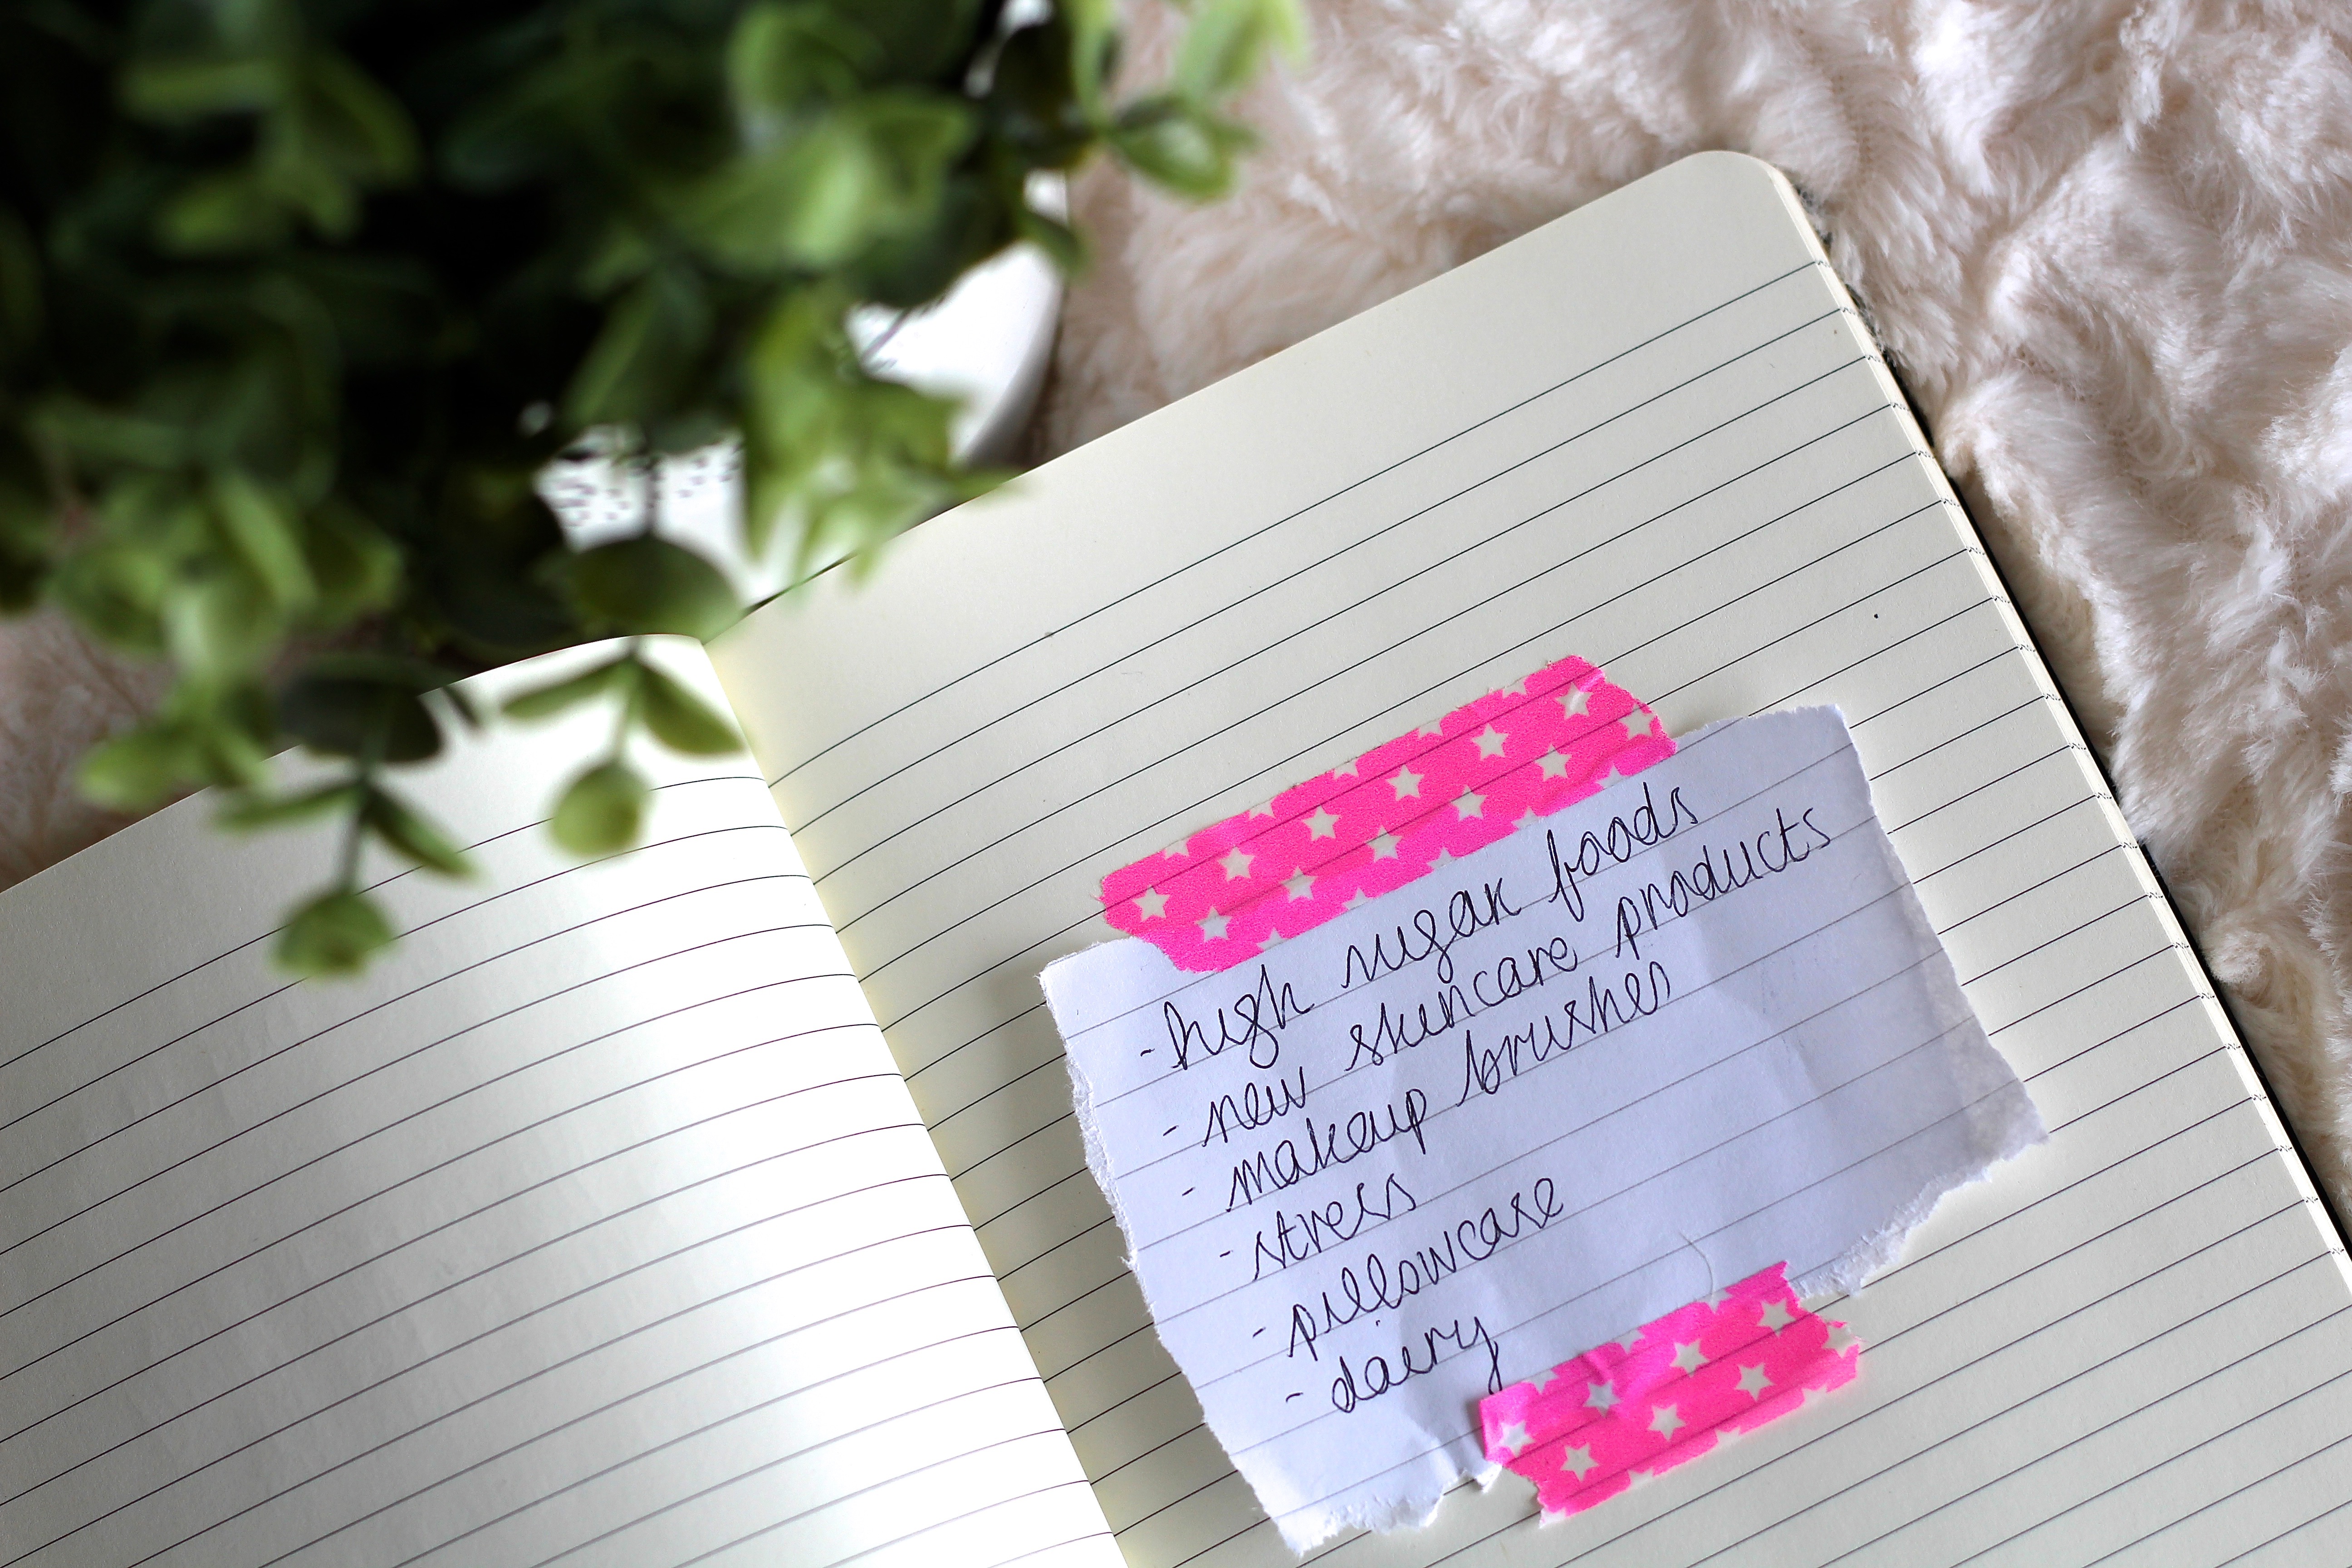 - high sugar foods
- new skincare products
- makeup brushes
- stress
- pillowcase
- dairy